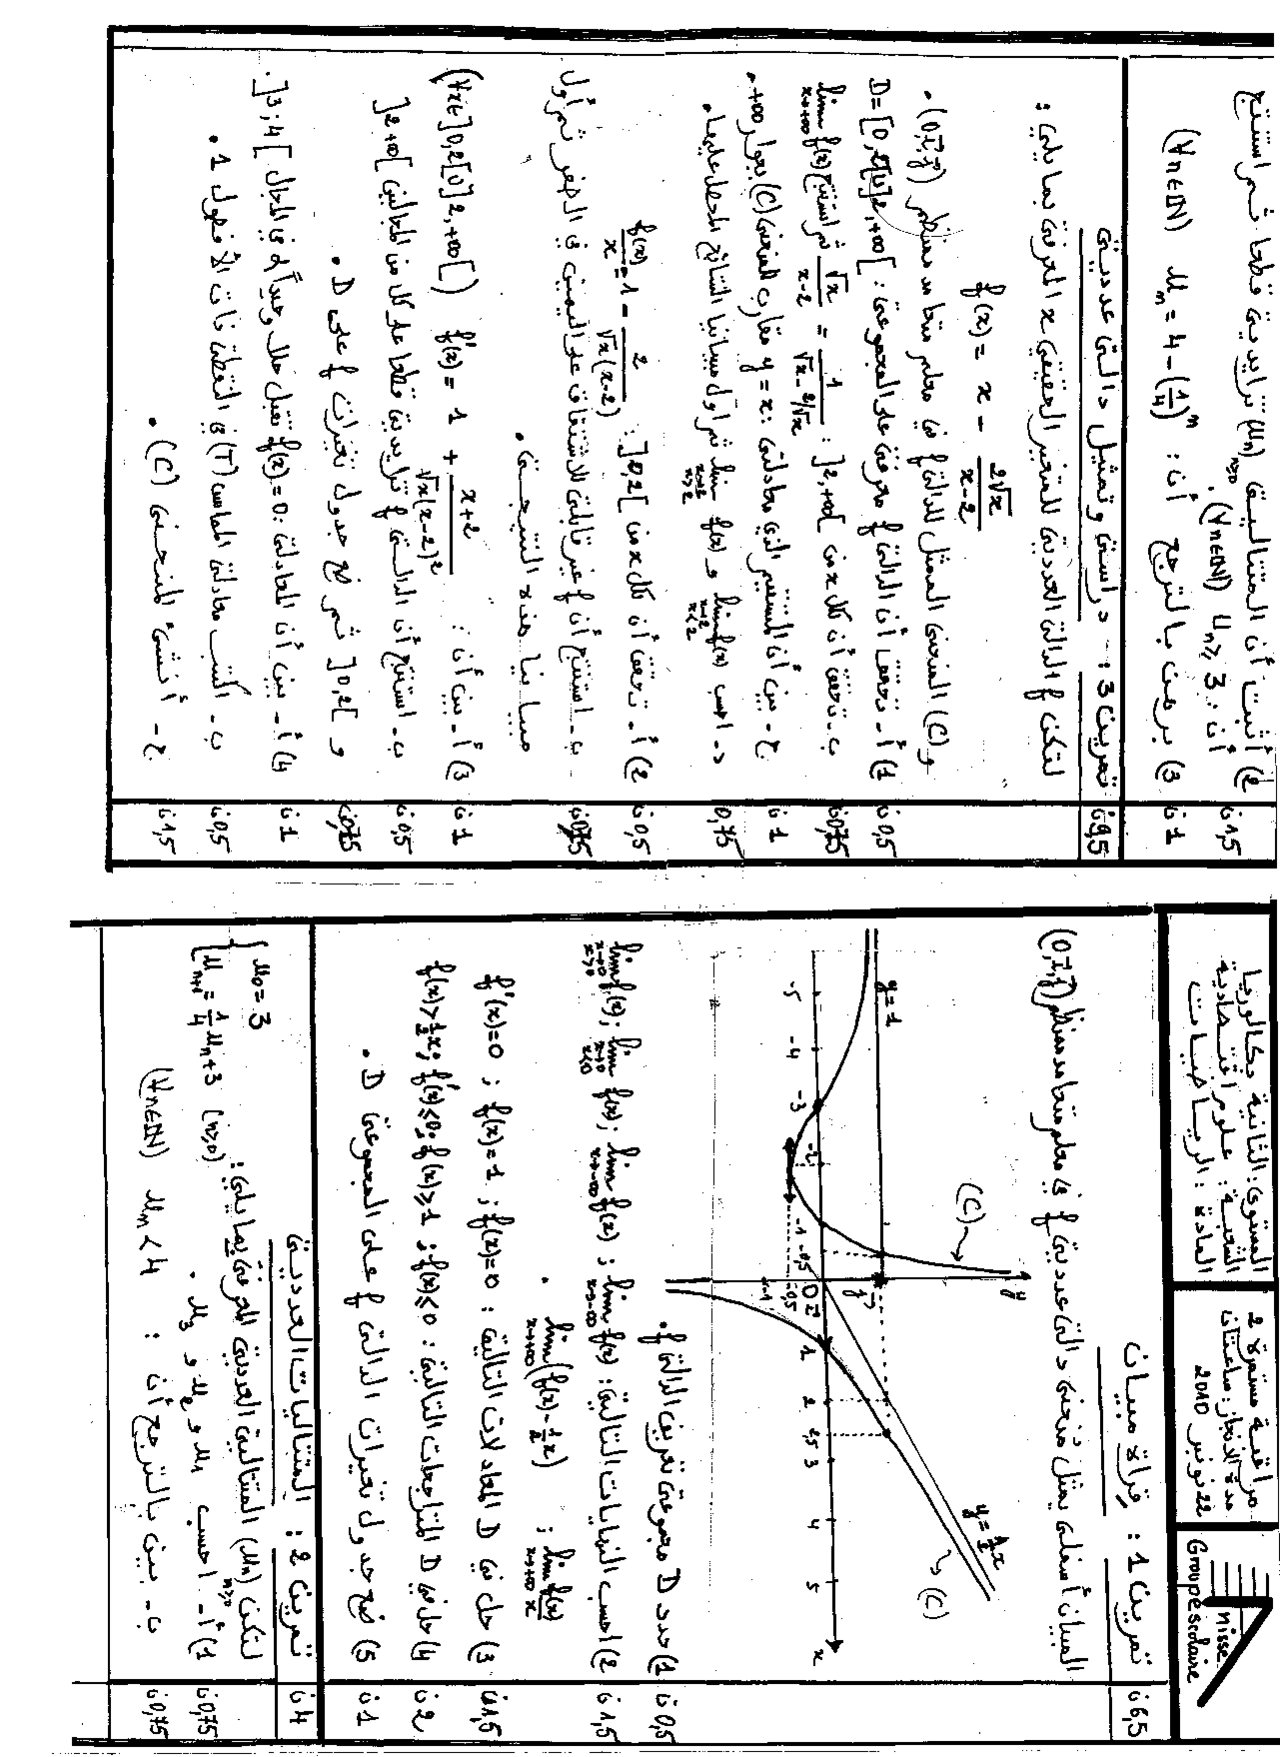 المستوى: الثانية بكالوريا
الشعبة: علوم اقتصادية
المادة: الرياضيات
مراقبة مستمرة 2
مدة الإنجاز: ساعتان
22 نونبر 2010
Anisse
Groupe scolaire
6,5ن تمرين 1: قراءة مبيان
المبيان أسفله يمثل منحنى دالة عددية f في معلم متعامد ممنظم (O,i,j)
y=1
(C)
y
y=½x
(C)
-5 -4 -3 -2 -1 -0,5 O 1 2 2,5 3 4 5 x
1
-0,5
-1
0,5ن 1) حدد D مجموعة تعريف الدالة f.
1,5ن 2) احسب النهايات التالية: lim f(x) x→-∞ ; lim f(x) x→-∞ ; lim f(x) x→0 x<0 ; lim f(x) x→0 x>0
lim f(x)/x x→+∞ ; lim (f(x)-½x) x→+∞ .
1,5ن 3) حل في D المعادلات التالية: f(x)=0 ; f(x)=1 ; f'(x)=0
2ن 4) حل في D المتراجحات التالية: f(x)≤0 ; f(x)≥1 ; f'(x)≤0 ; f(x)>½x
1ن 5) ضع جدول تغيرات الدالة f على المجموعة D.
4ن تمرين 2: المتتاليات العددية
لتكن (Uₙ)n≥0 المتتالية العددية المعرفة بما يلي: { U₀=3
Uₙ₊₁=¼Uₙ+3 (n≥0)
0,75ن 1) أ- احسب U₁ و U₂ و U₃.
0,75ن ب- بين بالترجع أن: (∀n∈IN) Uₙ<4
1,5ن 2) أثبت أن المتتالية (Uₙ)n≥0 تزايدية قطعا ثم استنتج
أن: (∀n∈IN) Uₙ≥3.
1ن 3) برهن بالترجع أن: (∀n∈IN) Uₙ=4-(¼)ⁿ
9,5ن تمرين 3: دراسة وتمثيل دالة عددية
لتكن f الدالة العددية للمتغير الحقيقي x المعرفة بما يلي:
f(x)= x - 2√x/(x-2)
و (C) المنحنى الممثل للدالة f في معلم متعامد ممنظم (O,i,j).
0,5ن 1) أ- تحقق أن الدالة f معرفة على المجموعة: D=[0,2[U]2,+∞[
0,75ن ب- تحقق أن لكل x من ]2,+∞[: √x/(x-2) = 1/(√x-2/√x) ثم استنتج lim f(x) x→+∞
1ن ج- بين أن المستقيم الذي معادلته: y=x مقارب للمنحنى (C) بجوار +∞.
0,75 د- احسب lim f(x) x→2 x<2 و lim f(x) x→2 x>2 ثم أول مبيانيا النتائج المحصل عليها.
0,5ن 2) أ- تحقق أن لكل x من ]0,2[: f(x)/x=1-2/(√x(x-2))
0,75ن ب- استنتج أن f غير قابلة للاشتقاق على اليمين في الصفر ثم أول
مبيانيا هذه النتيجة.
1ن 3) أ- بين أن: (∀x∈]0,2[U]2,+∞[) f'(x)=1+(x+2)/(√x(x-2)²)
0,5ن ب- استنتج أن الدالة f تزايدية قطعا على كل من المجالين ]2,+∞[
0,75ن و ]0,2[ ثم ضع جدول تغيرات f على D.
1ن 4) أ- بين أن المعادلة: f(x)=0 تقبل حلا وحيدا α في المجال ]3;4[.
0,5ن ب- اكتب معادلة المماس (T) في النقطة ذات الأفصول 1.
1,5ن ج- أنشئ المنحنى (C).